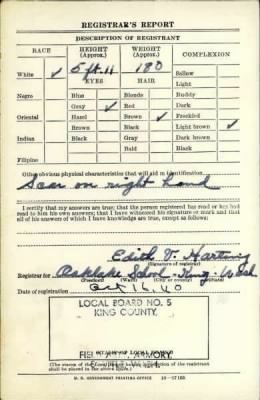 REGISTRAR'S REPORT
DESCRIPTION OF REGISTRANT
RACE HEIGHT (Approx.) WEIGHT (Approx.) COMPLEXION
5 ft. 11 190
White ✓ EYES HAIR Sallow
Light
Negro Blue Blonde Ruddy
Gray ✓ Red Dark
Oriental Hazel Brown ✓ Freckled
Brown Black Light brown ✓
Indian Black Gray Dark brown
Bald Black
Filipino
Other obvious physical characteristics that will aid in identification
Scar on right hand
I certify that my answers are true; that the person registered has read or has had
read to him his own answers; that I have witnessed his signature or mark and that
all of his answers of which I have knowledge are true, except as follows:
Edith T. Harting
(Signature of registrar)
Registrar for Oaklake School - King - Wash
(Precinct) (Ward) (City or county) (State)
Date of registration Oct 16, 40
LOCAL BOARD NO. 5
KING COUNTY,
ARMORY,
(The stamp of the
shall be placed in the above space.)
U. S. GOVERNMENT PRINTING OFFICE 16-17105